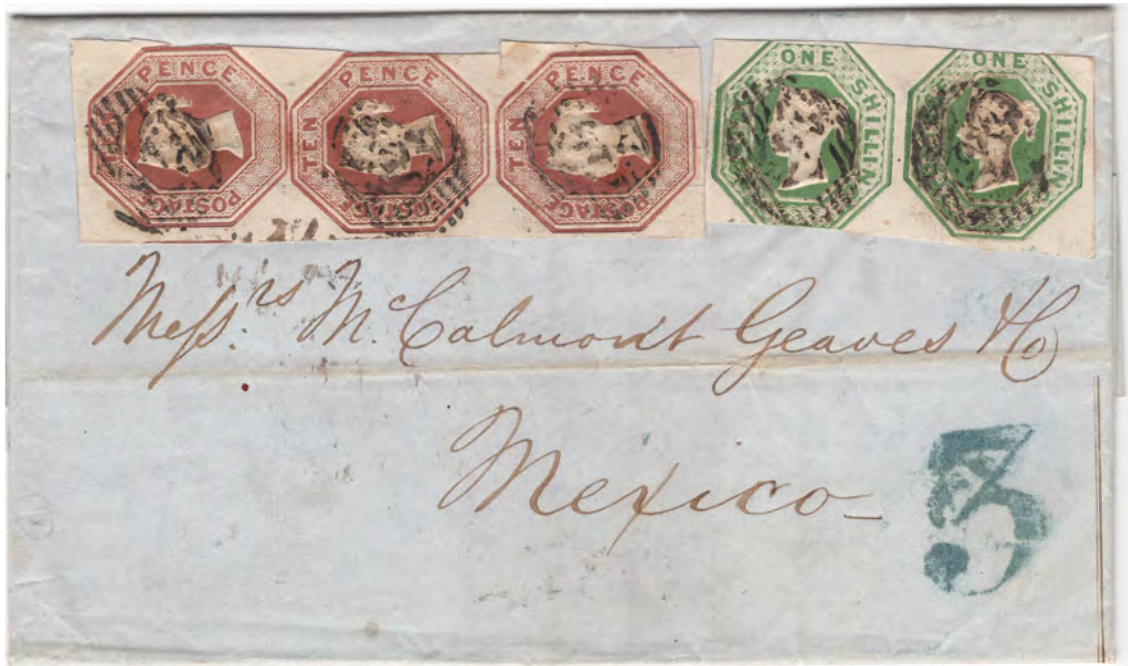 TEN PENCE POSTAGE
TEN PENCE POSTAGE
TEN PENCE POSTAGE
ONE SHILLING
ONE SHILLING
Messrs. McCalmont Geaves & Co
Mexico
3